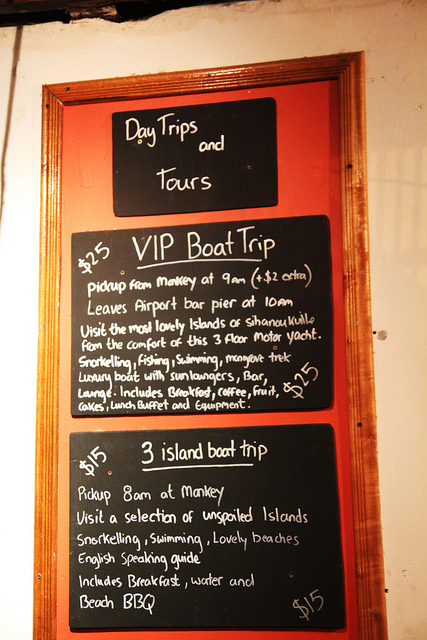 Day Trips
and
Tours
$25
VIP Boat Trip
pickup from Monkey at 9am (+$2 extra)
Leaves Airport bar pier at 10AM
Visit the most lovely Islands of sihanoukville
from the comfort of this 3 floor motor yacht.
Snorkelling, fishing, swimming, mangrove trek
Luxury boat with sunloungers, Bar,
Lounge. Includes Breakfast, coffee, fruit,
cakes, Lunch Buffet and Equipment.
$25
$15
3 island boat trip
Pickup 8am at Monkey
Visit a selection of unspoiled Islands
Snorkelling, Swimming, Lovely beaches
English speaking guide
Includes Breakfast, water and
Beach BBQ
$15